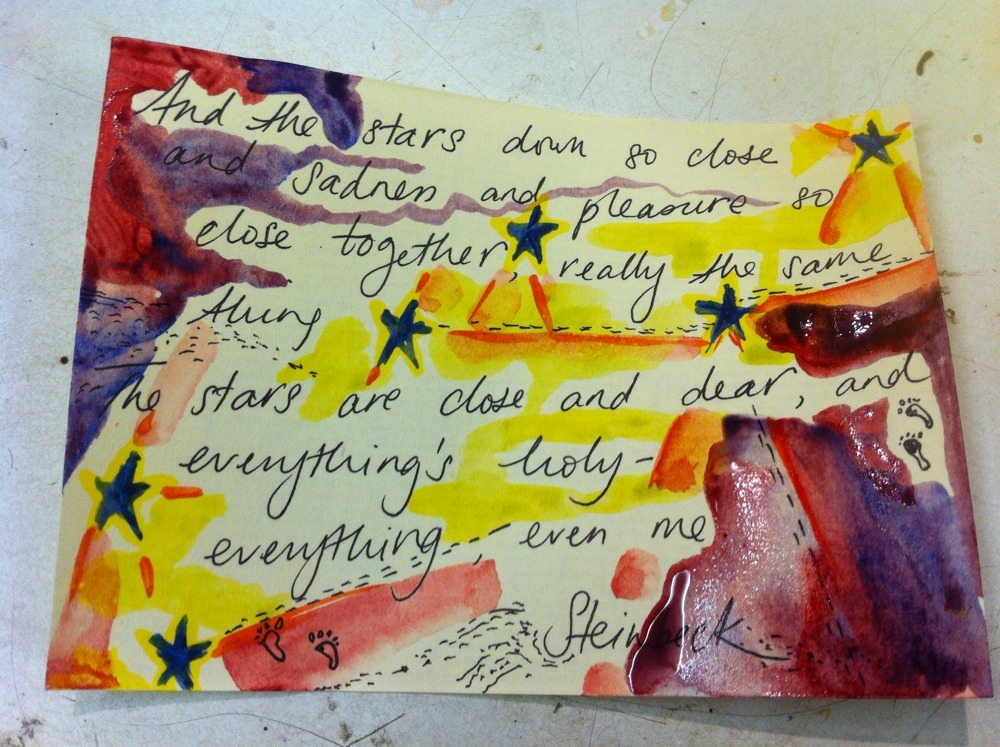 And the stars down so close
and sadness and pleasure so
close together, really the same
thing
The stars are close and dear, and
everything's holy-
everything, even me.
Steinbeck